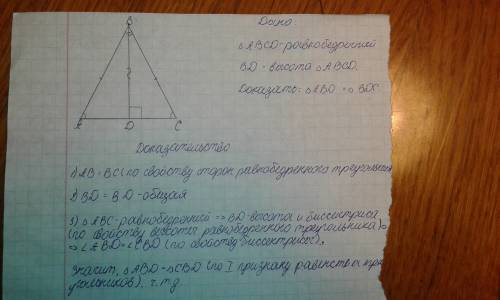 B
A D C
Дано:
△ABCD-равнобедренный
BD-высота △ABCD.
Доказать: △ABD = △BDC
Доказательство
1) AB=BC (по свойству сторон равнобедренного треугольника)
2) BD=BD-общая
3) △ABC-равнобедренный => BD-высота и биссектриса
(по свойству высоты равнобедренного треугольника) =>
=> ∠ABD=∠CBD (по свойству биссектрисы).
Значит, △ABD=△CBD (по I признаку равенства тре
угольников), ч.т.д.